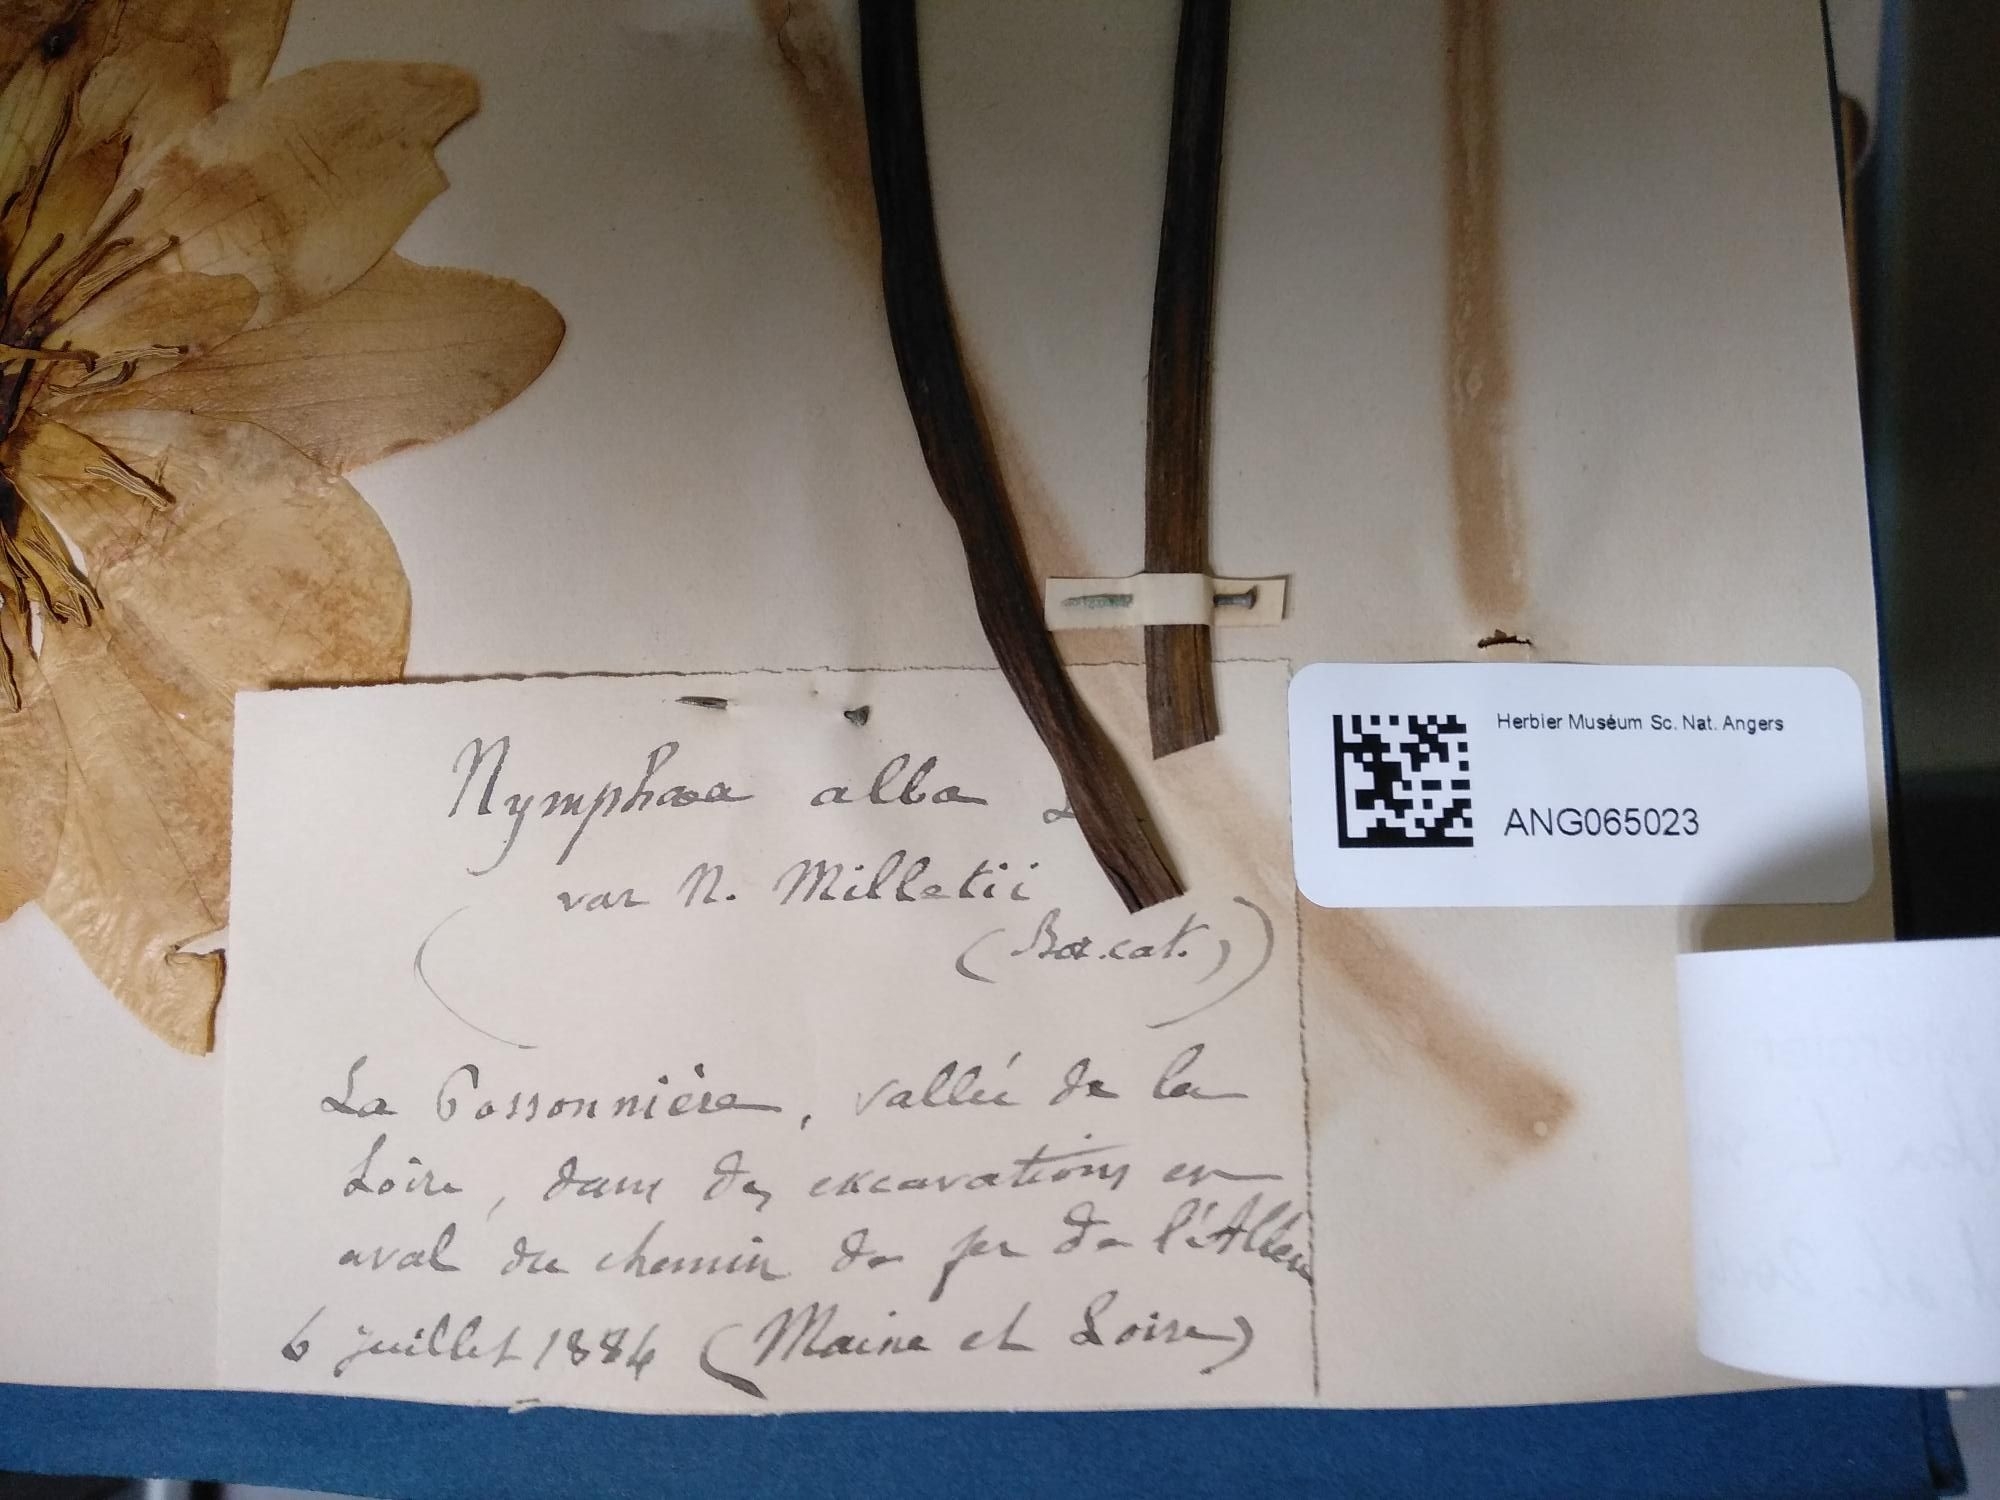 Nymphaea alba L
var N. Milletii
(Bor. cat.)
La Possonnière, vallée de la
Loire, dans des excavations en
aval du chemin de fer de l'Alleu
6 juillet 1884 (Maine et Loire)
Herbier Muséum Sc. Nat. Angers
ANG065023